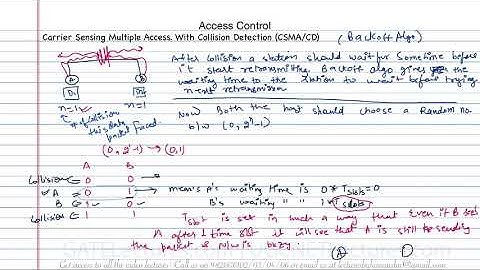 Access Control
Carrier Sensing Multiple Access With Collision Detection (CSMA/CD) (Backoff Algo)
After Collision a station should wait for Sometime before
it start retransmitting. Backoff algo gives the
waiting time to the station to wait before trying
next retransmission
A B
D1
n=1 n=1
# of collision
this data
packet faced.
Now Both the host should choose a Random no.
b/w (0, 2ⁿ-1)
(0, 2¹-1) → (0,1)
A B
Collision 0 0
A 0 1 → means A's waiting time is 0 * Tslots = 0
B 1 0 B's waiting " " 1 * Tslots
Collision 1 1
Tslot is set in such a way that Even if B sees
A after 1 time slot it will see that A is still sending
the packet & N/w is busy.